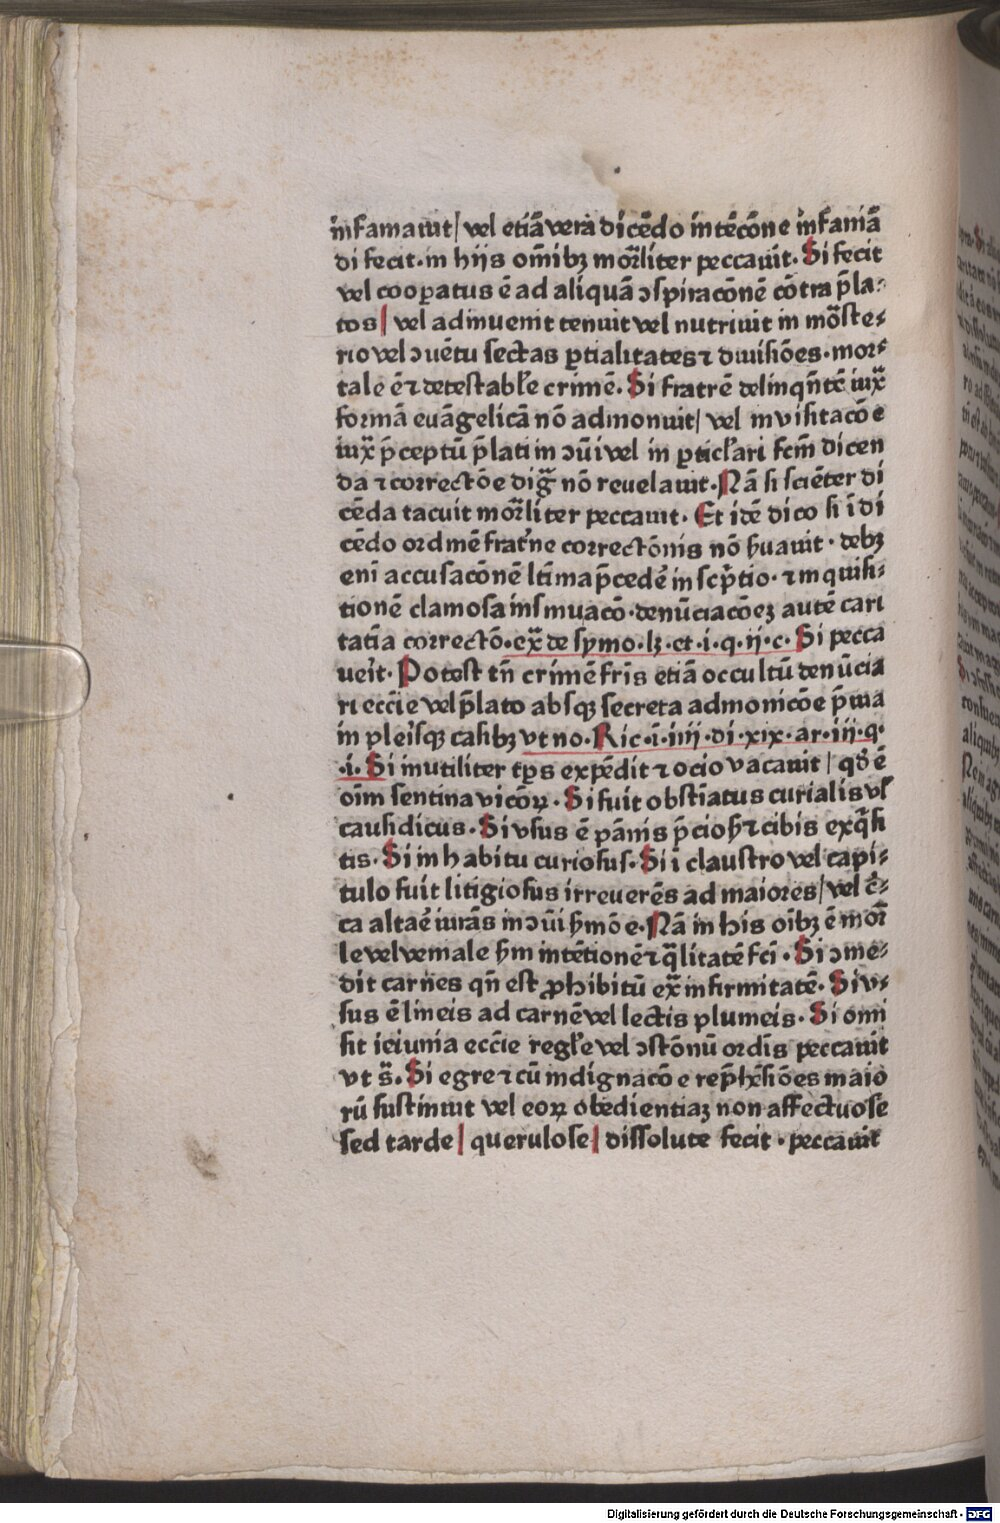 infamauit/ vel etiā vera dicēdo intēcōne infamā
di fecit. in hijs om̄ibꝫ mor̄liter peccauit. Si fecit
vel cooꝑatus ē ad aliquā ↄspiracōnē cōtra p̄la⸗
tos/ vel adinuenit tenuit vel nutriuit in mōste⸗
rio vel ↄuētu sectas ꝑtialitates ⁊ diuisiōes. mor⸗
tale ē ⁊ detestabl̓e crimē. Si fratrē delinqn̄tē iux̄
formā euāgelicā nō admonuit/ vel in visitacōe
iux̄ p̄ceptū p̄lati in ↄūi vel in ꝑticl̓ari fcm̄ dicen
da ⁊ correctōe dig̅ nō reuelauit. Nā si sciēter di
cēda tacuit mor̄liter peccauit. Et idē dico si ī di
cēdo ordinē frat̓ne correctōnis nō ẜuauit. debꝫ
enī accusacōnē lt̄ima p̄cedē in sc̓ptio. ⁊ inquisi⸗
tionē clamosa insinuacō. denūciacōeꝫ autē cari
tatīa correctō. ex̄ de symo. lꝫ. et .i. q. ij. c. Si pecca
ueīt. Potest tn̄ crimē fr̄is etiā occultū denūcia
ri eccīe vel p̄lato absqꝫ secreta admonicōe p̄uia
in pleīsqꝫ casibꝫ vt no. Ric. i. iiij. di. xix. ar. iij. q.
.i. Si inutiliter tp̄s expēdit ⁊ ocio vacauit/ qd̓ ē
oīm sentina vicōꝝ. Si fuit obstīatus curialis vl̓
causidicus. Si vsus ē pānis p̄ciosꝭ ⁊ cibis exq̄si
tis. Si in habitu curiosus. Si ī claustro vel capi⸗
tulo fuit litigiosus irreuerēs ad maiores/ vel c̄⸗
ca altaē iurās in ↄūi ẜmōe. Nā in his oībꝫ ē mor̄
le vel veniale ẜm intētionē ⁊ q̄litatē fcī. Si ↄme⸗
dit carnes qn̄ est ꝓhibitū ex̄ infirmitatē. Si v⸗
sus ē lineis ad carnē vel lectis plumeis. Si omi
sit ieiunia eccīe regl̓e vel ↄstōnū ordīs peccauit
vt s̄. Si egre ⁊ cū indignacōe rep̄hēsiōes maio
rū sustinuit vel eoꝝ obedientiaꝫ non affectuose
sed tarde/ querulose/ dissolute fecit. peccauit
Digitalisierung gefördert durch die Deutsche Forschungsgemeinschaft - DFG